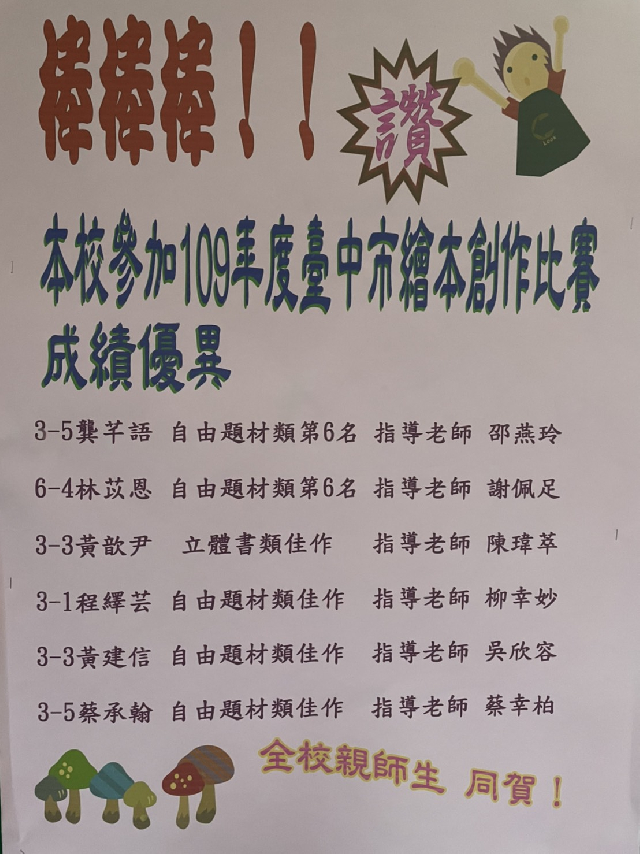 棒棒棒！！
讚
本校參加109年度臺中市繪本創作比賽
成績優異
3-5龔芊語 自由題材類第6名 指導老師 邵燕玲
6-4林苡恩 自由題材類第6名 指導老師 謝佩足
3-3黃歆尹 立體書類佳作 指導老師 陳瑋萃
3-1程繹芸 自由題材類佳作 指導老師 柳幸妙
3-3黃建信 自由題材類佳作 指導老師 吳欣容
3-5蔡承翰 自由題材類佳作 指導老師 蔡幸柏
全校親師生 同賀！